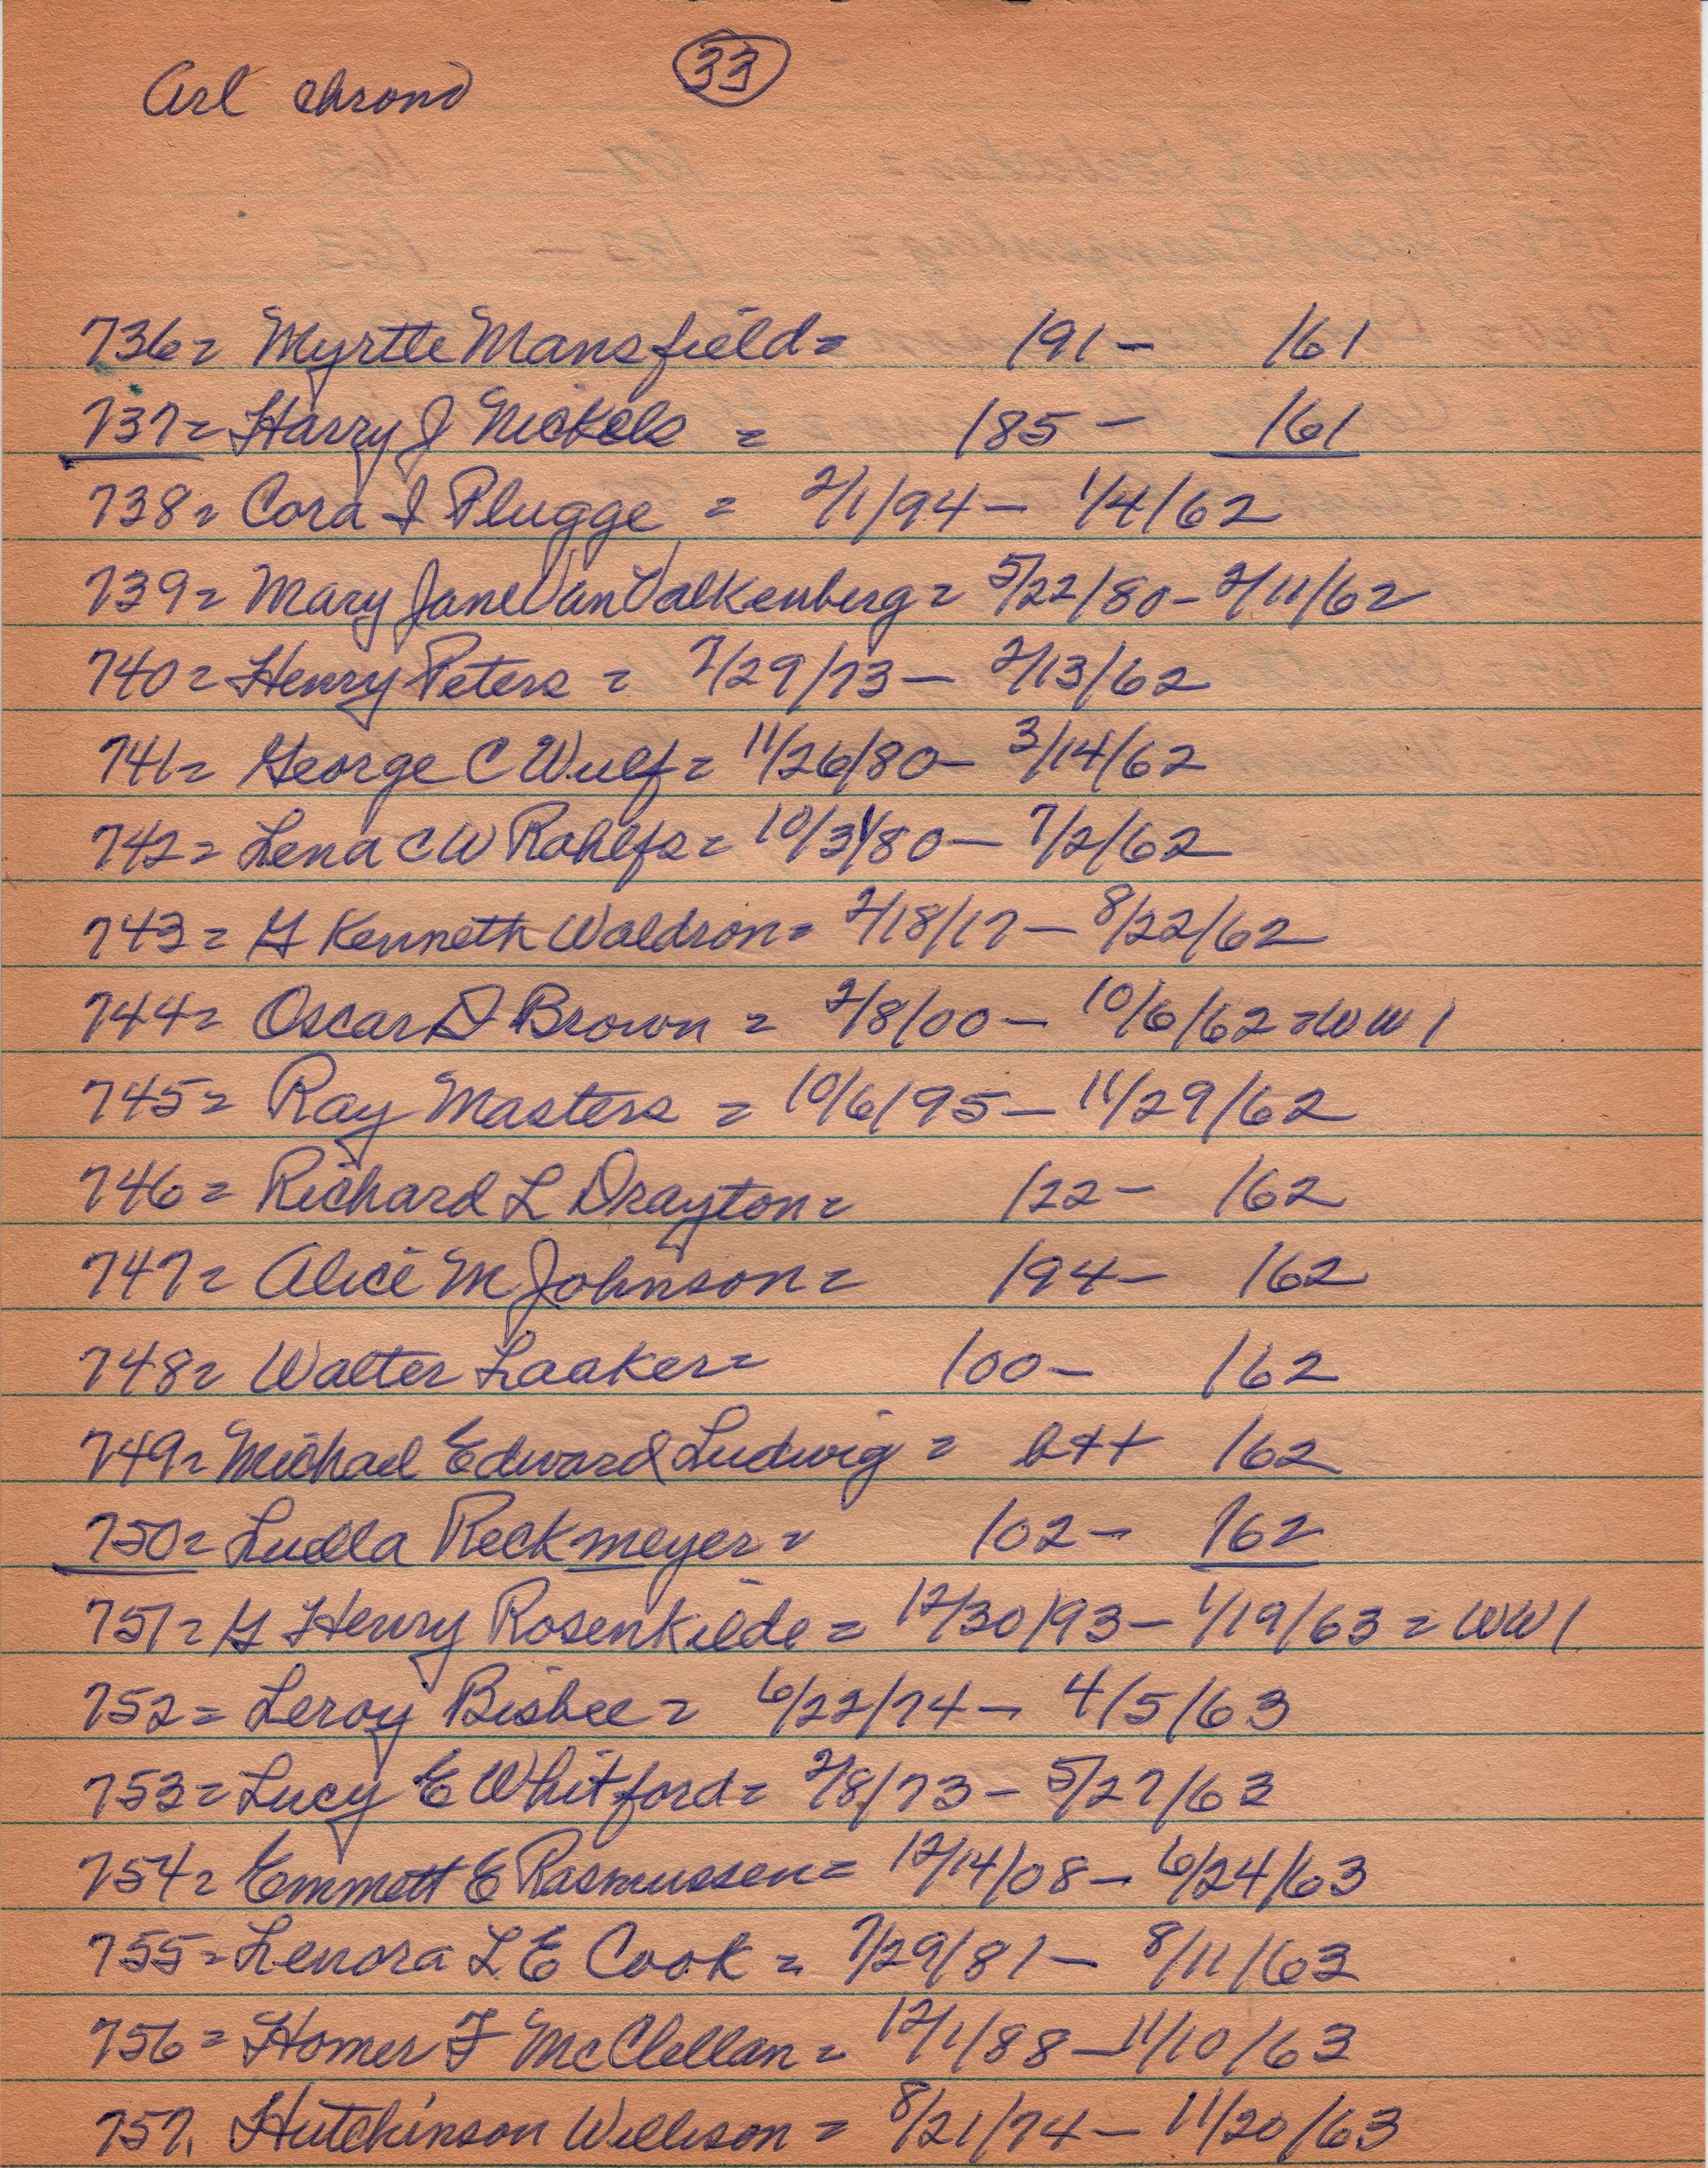 Arl chrono 33
736= Myrtle Mansfield= /91- /61
737= Harry J Nickels = /85- /61
738= Cora I Plugge = 2/1/94- 1/4/62
739= Mary Jane VanValkenberg= 5/22/80- 2/11/62
740= Henry Peters = 7/29/73- 2/13/62
741= George C Wulf= 11/26/80- 3/14/62
742= Lena C W Rohlfs= 10/31/80- 7/2/62
743= G Kenneth Waldron= 2/18/17- 8/22/62
744= Oscar D Brown = 2/8/00- 10/6/62=WW1
745= Ray Masters = 10/6/95- 11/29/62
746= Richard L Drayton= /22- /62
747= Alice M Johnson= /94- /62
748= Walter Laaker= /00- /62
749= Michael Edward Ludwig = b++ /62
750= Luella Reckmeyer= /02- /62
751= G Henry Rosenkilde= 12/30/93- 1/19/63= WW1
752= Leroy Bisbee= 6/22/74- 4/5/63
753= Lucy E Whitford= 2/8/73- 5/27/63
754= Emmett E Rasmussen= 12/14/08- 6/24/63
755= Lenora L E Cook = 7/29/81- 8/11/63
756= Homer F McClellan= 12/1/88- 11/10/63
757. Hutchinson Willison = 8/21/74- 11/20/63